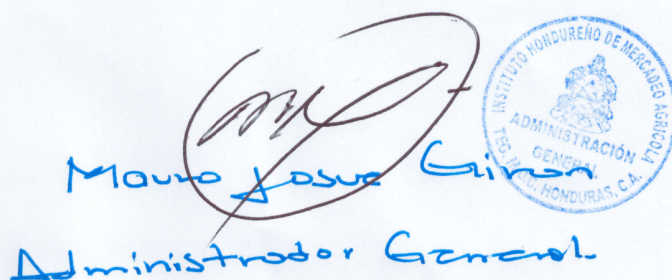 INSTITUTO HONDUREÑO DE MERCADEO AGRÍCOLA
ADMINISTRACIÓN
GENERAL
HONDURAS, C.A.
Mauro Josue Giron
Administrador General